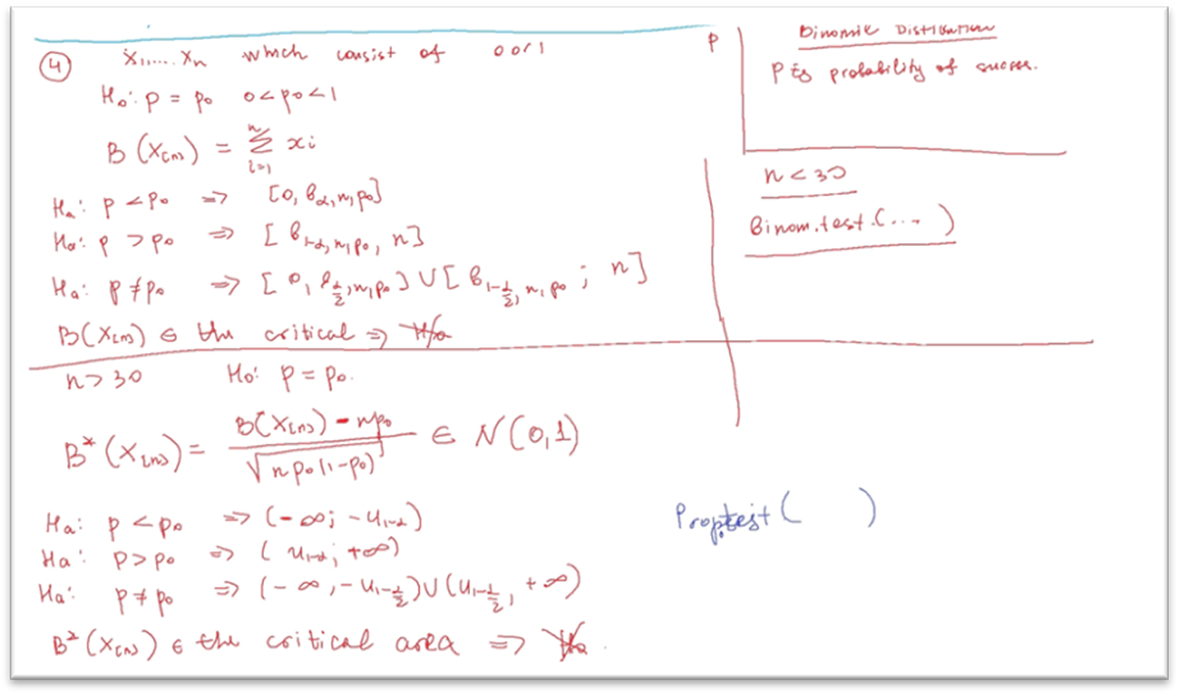 ④ X₁,.... Xₙ which consist of 0 or 1
H₀: p = p₀ 0 < p₀ < 1
B (X[n]) = Σⁿᵢ₌₁ xi
Hₐ: p < p₀ => [0, Bα,n,p₀]
Hₐ: p > p₀ => [B1-α,n,p₀, n]
Hₐ: p ≠ p₀ => [0, Bα/2,n,p₀] ∪ [B1-α/2,n,p₀ ; n]
B(X[n]) ∈ the critical => H̸₀
p
Binomie Distribution
P is probability of succes.
n < 30
Binom.test.(... )
n > 30 H₀: p = p₀.
B*(X[n]) = (B(X[n]) - np₀) / √(n p₀(1-p₀)) ∈ N(0,1)
Hₐ: p < p₀ => (-∞; -U1-α)
Hₐ: p > p₀ => (U1-α; +∞)
Hₐ: p ≠ p₀ => (-∞, -U1-α/2) ∪ (U1-α/2, +∞)
B*(X[n]) ∈ the critical area => H̸₀.
Prop.test ( )